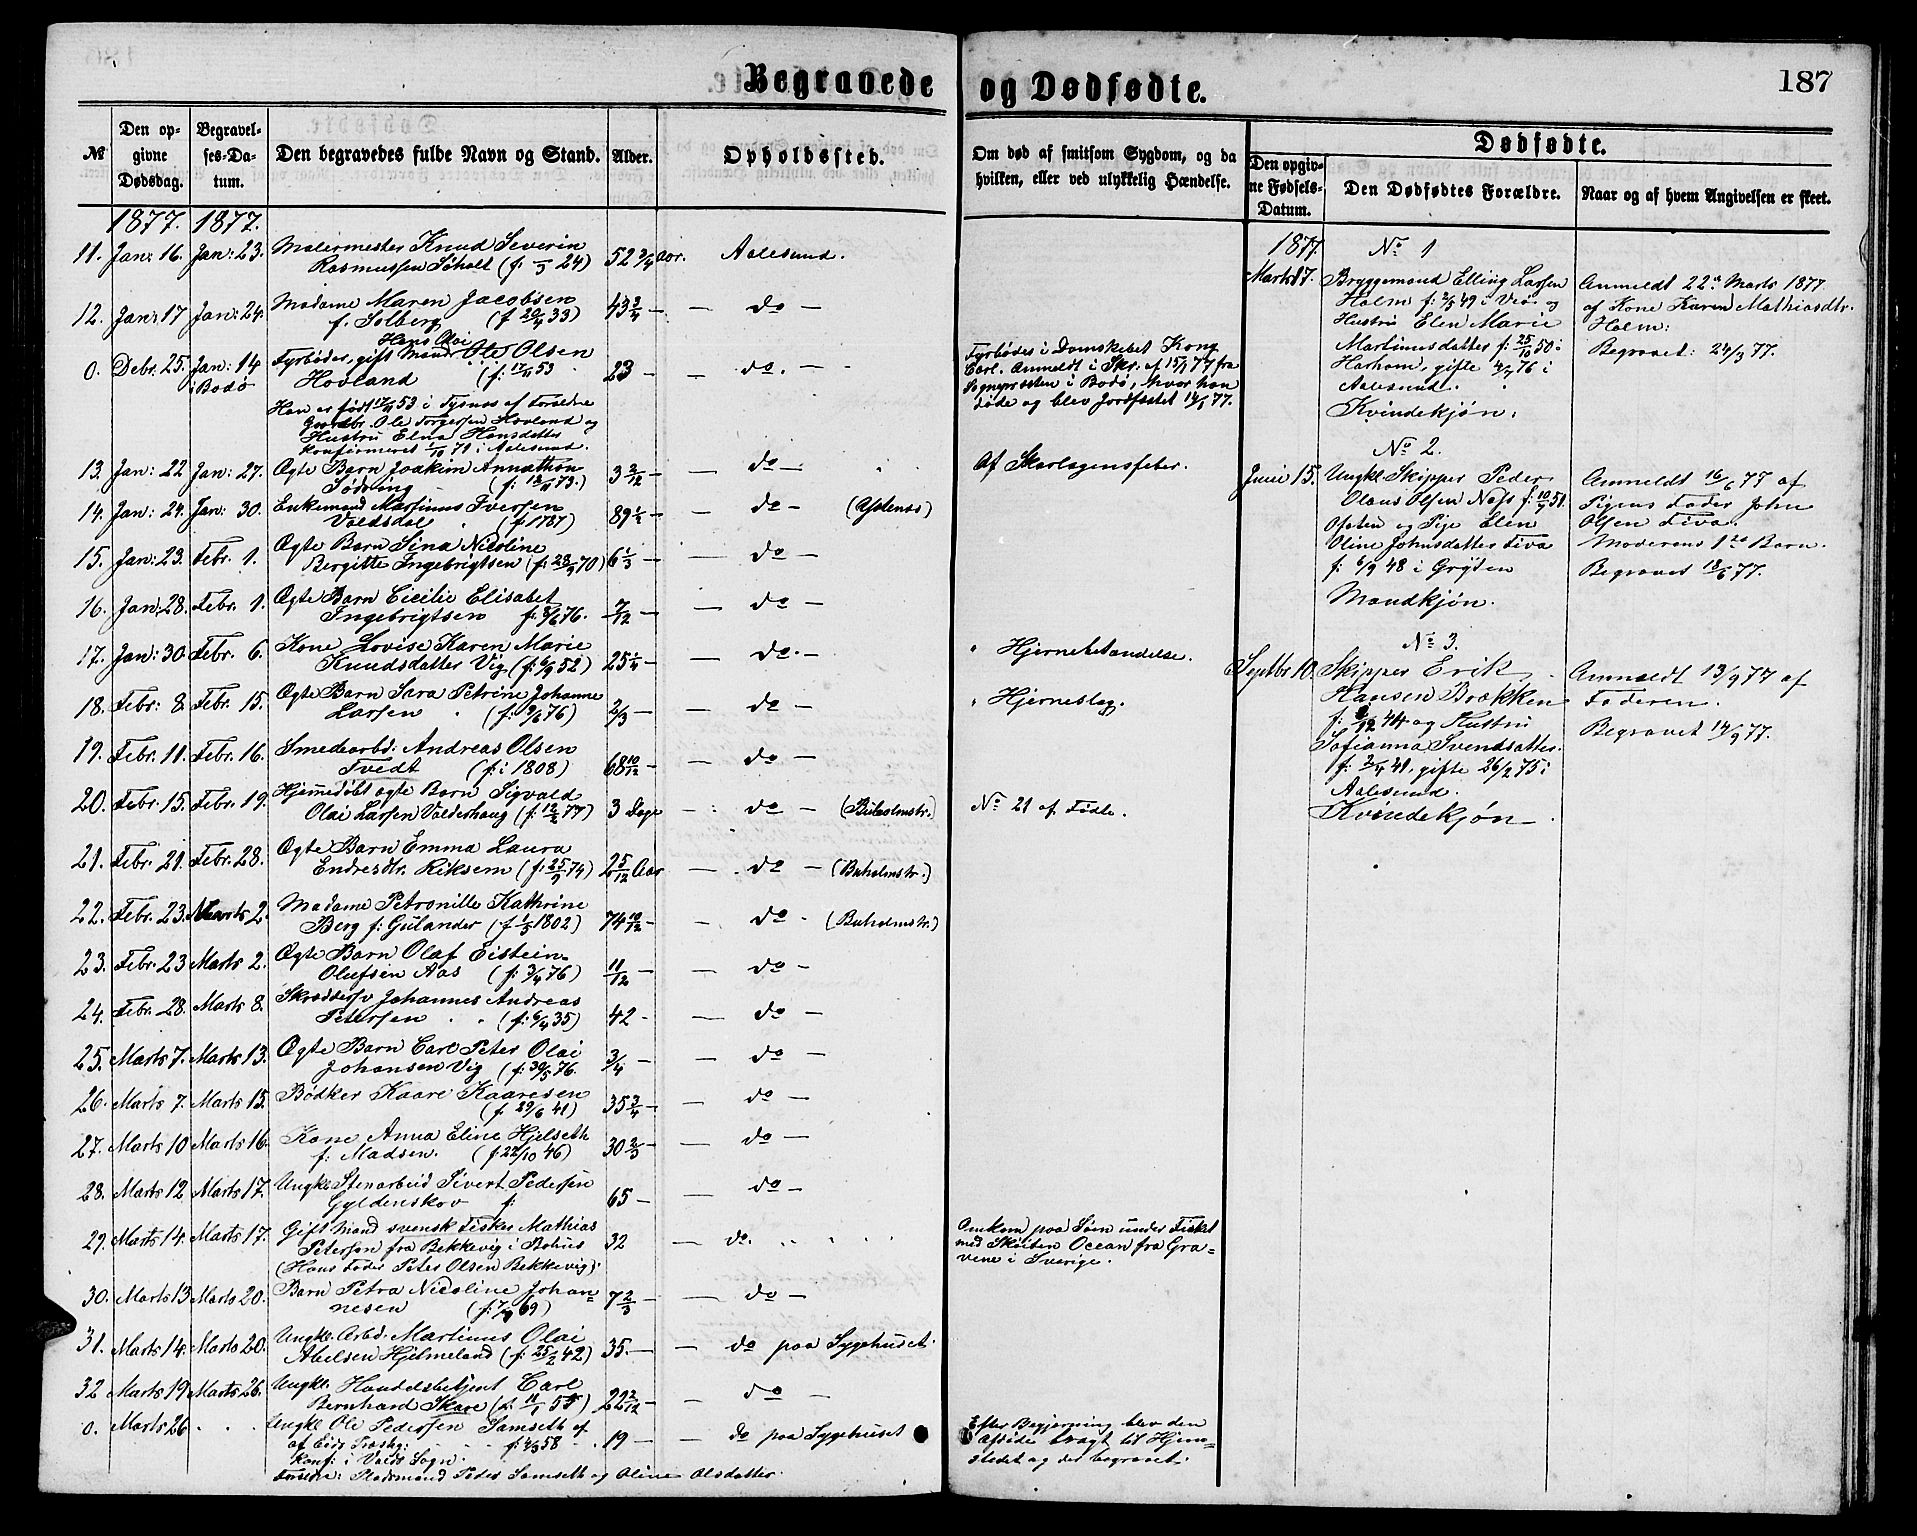 Begravede og Dødfødte.
187
№
Den opgivne Dødsdag.
Begravelses-Datum.
Den begravedes fulde Navn og Stand.
Alder.
Opholdssted.
Om død af smitsom Sygdom, og da hvilken, eller ved ulykkelig Hændelse.
Dødfødte.
Den opgivne Fødsels-Datum.
Den Dødfødtes Forældre.
Naar og af hvem Angivelsen er skeet.
1877. 1877.
11. Jan: 16. Jan: 23. Malermester Knud Severin
Rasmussen Søholt (f: 24) 52 3/4 Aar. Aalesund.
12. Jan: 17 Jan: 24. Madame Maren Jacobsen
f. Solberg (f 20/4 33) 43 3/4 — do —
Hans Olai
0. Debr. 25. Jan: 14 Fyrbøder, gift Mand Ole Olsen
i Bodø Hovland (f: 17/11 53 23 — do. —
Han er født 17/11 53 i Tysnæs af Forældre
Gaardbr. Ole Torgersen Hovland og
Hustru Elna Hansdatter
Konfirmeret 1/10 71 i Aalesund.
Fyrbøder i Damskebet Kong
Carl. Anmeldt i Skr. af 15/1 77 fra
Sognepræsten i Bodø, hvor han
døde og blev Jordfæstet 14/1 77.
13. Jan: 22 Jan: 27. Ægte Barn Joakim Annathon
Sødring (f: 18/11 73.) 3 2/12 — do — Af Skarlagensfeber.
14. Jan: 24. Jan: 30. Enkemand Martinus Iversen
Valdsdal (f 1787) 89 1/2 — do — (Aslenæs)
15. Jan: 23. Febr. 1. Ægte Barn Sina Nicoline
Bergitte Ingebrigtsen (f: 28/9 70) 6 1/3 — do —
16. Jan: 28. Febr. 1. Ægte Barn Cecilie Elisabet
Ingebrigtsen f: 8/6 76. 7/12 — do —
17. Jan: 30 Febr. 6. Kone Lovise Karen Marie
Knudsdatter Vig (f: 6/9 52) 25 1/4 — do. — " Hjernebetændelse.
18. Febr: 8. Febr. 15. Ægte Barn Sara Petrine Johanne
Larsen (f: 9/6 76) 2/3 — do — " Hjerneslag.
19. Febr. 11. Febr. 16. Smedearbd: Andreas Olsen
Tvedt (f: i 1808) 68 10/12 — do —
20. Febr. 15. Febr. 19. Hjemmedøbt ægte Barn Sigvald
Olai Larsen Valderhaug (f: 12/2 77) 3 Dage — do — (Buholmstr.) No 21 af Fødte.
21. Febr. 21. Febr. 28. Ægte Barn Emma Laura
Endresdtr. Riksem (f: 25/9 74) 2 5/12 Aar — do — (Buholmstr.)
22. Febr. 23. Marts 2. Madame Petronille Kathrine
Berg f: Gulander (f 1/5 1802) 74 10/12 — do. (Buholmstr.)
23. Febr. 23 Marts 2. Ægte Barn Olaf Eistein
Olufsen Aas (f: 3/4 76) 11/12 — do —
24. Febr. 28. Marts 8. Skræddersv Johannes Andreas
Petersen (f: 6/4 35) 42 — do —
25. Marts 7. Marts 13. Ægte Barn Carl Peter Olai
Johansen Vig (f: 30/5 76. 3/4 — do —
26. Marts 7. Marts 15. Bødker Kaare Kaaresen
(f. 29/6 41) 35 3/4 — do —
27. Marts 10 Marts 16. Kone Anna Eline Hjelseth
f: Madsen. (f 22/10 46) 30 2/5 — do —
28. Marts 12 Marts 17. Ungkl. Stenarbeid Sivert Pedersen
Gyldenskov f: 65 — do —
29. Marts 14. Marts 17. Gift Mand svensk Fisker Mathias
Petersen fra Bekkevig i Bohus 32 — do.
(Hans Fader Peter Olsen Bekkevig).
Omkom paa Søen under Fisket
med Skøiten Ocean fra Gra-
vene i Sverige.
30. Marts 13 Marts 20. Barn Petra Nicoline Johan-
nesen (f: 7/7 69) 7 2/3 — do —
31. Marts 14. Marts 20. Ungkl. Arbd. Martinus Olai
Abelsen Hjelmeland (f: 25/2 42) 35. — do paa Sygehuset.
32 Marts 19 Marts 26. Ungkl. Handelsbetjent Carl
Bernhard Skare (f. 11/1 55) 22 2/12 — do —
0. Marts 26 Ungkl Ole Pedersen Samseth af
af Eids Præstg: f: 4/3 58 19 — do paa Sygehuset
Konf: i Volds Sogn.
Forældre: Pladsmand Peder Samseth og Oline Olsdatter.
Efter Begjærning blev den
afdøde bragt til Hjem-
stedet og der begravet.
1877. No 1
Marts 17. Bryggemand Elling Larsen
Holm f: 2/5 49 i Veø og
Hustru Elen Marie
Martinusdatter f: 25/10 50 i
Harham, gifte 4/7 76 i
Aalesund.
Kvindekjøn.
Anmeldt 22de Marts 1877
af Kone Karen Mathiasdtr.
Holm:
Begravet: 24/3 77.
No 2.
Juni 15. Ungkl. Skipper Peder
Olaus Olsen Næss f: 10/9 51.
Østen og Pige Elen
Oline Johnsdatter Tiva
f: 6/9 48 i Grytten
Mandkjøn.
Anmeldt 16/6 77 af
Pigens Fader John
Olsen Tiva.
Moderens 1ste Barn.
Begravet 18/6 77.
No 3.
Septbr. 10. Skipper Erik
Hansen Brækken
f: 8/12 44 og Hustru
Sofianna Svendsdatter
f: 2/4 41, gifte 26/2 75 i
Aalesund.
Kvindekjøn
Anmeldt 13/9 77 af
Faderen.
Begravet 14/9 77.